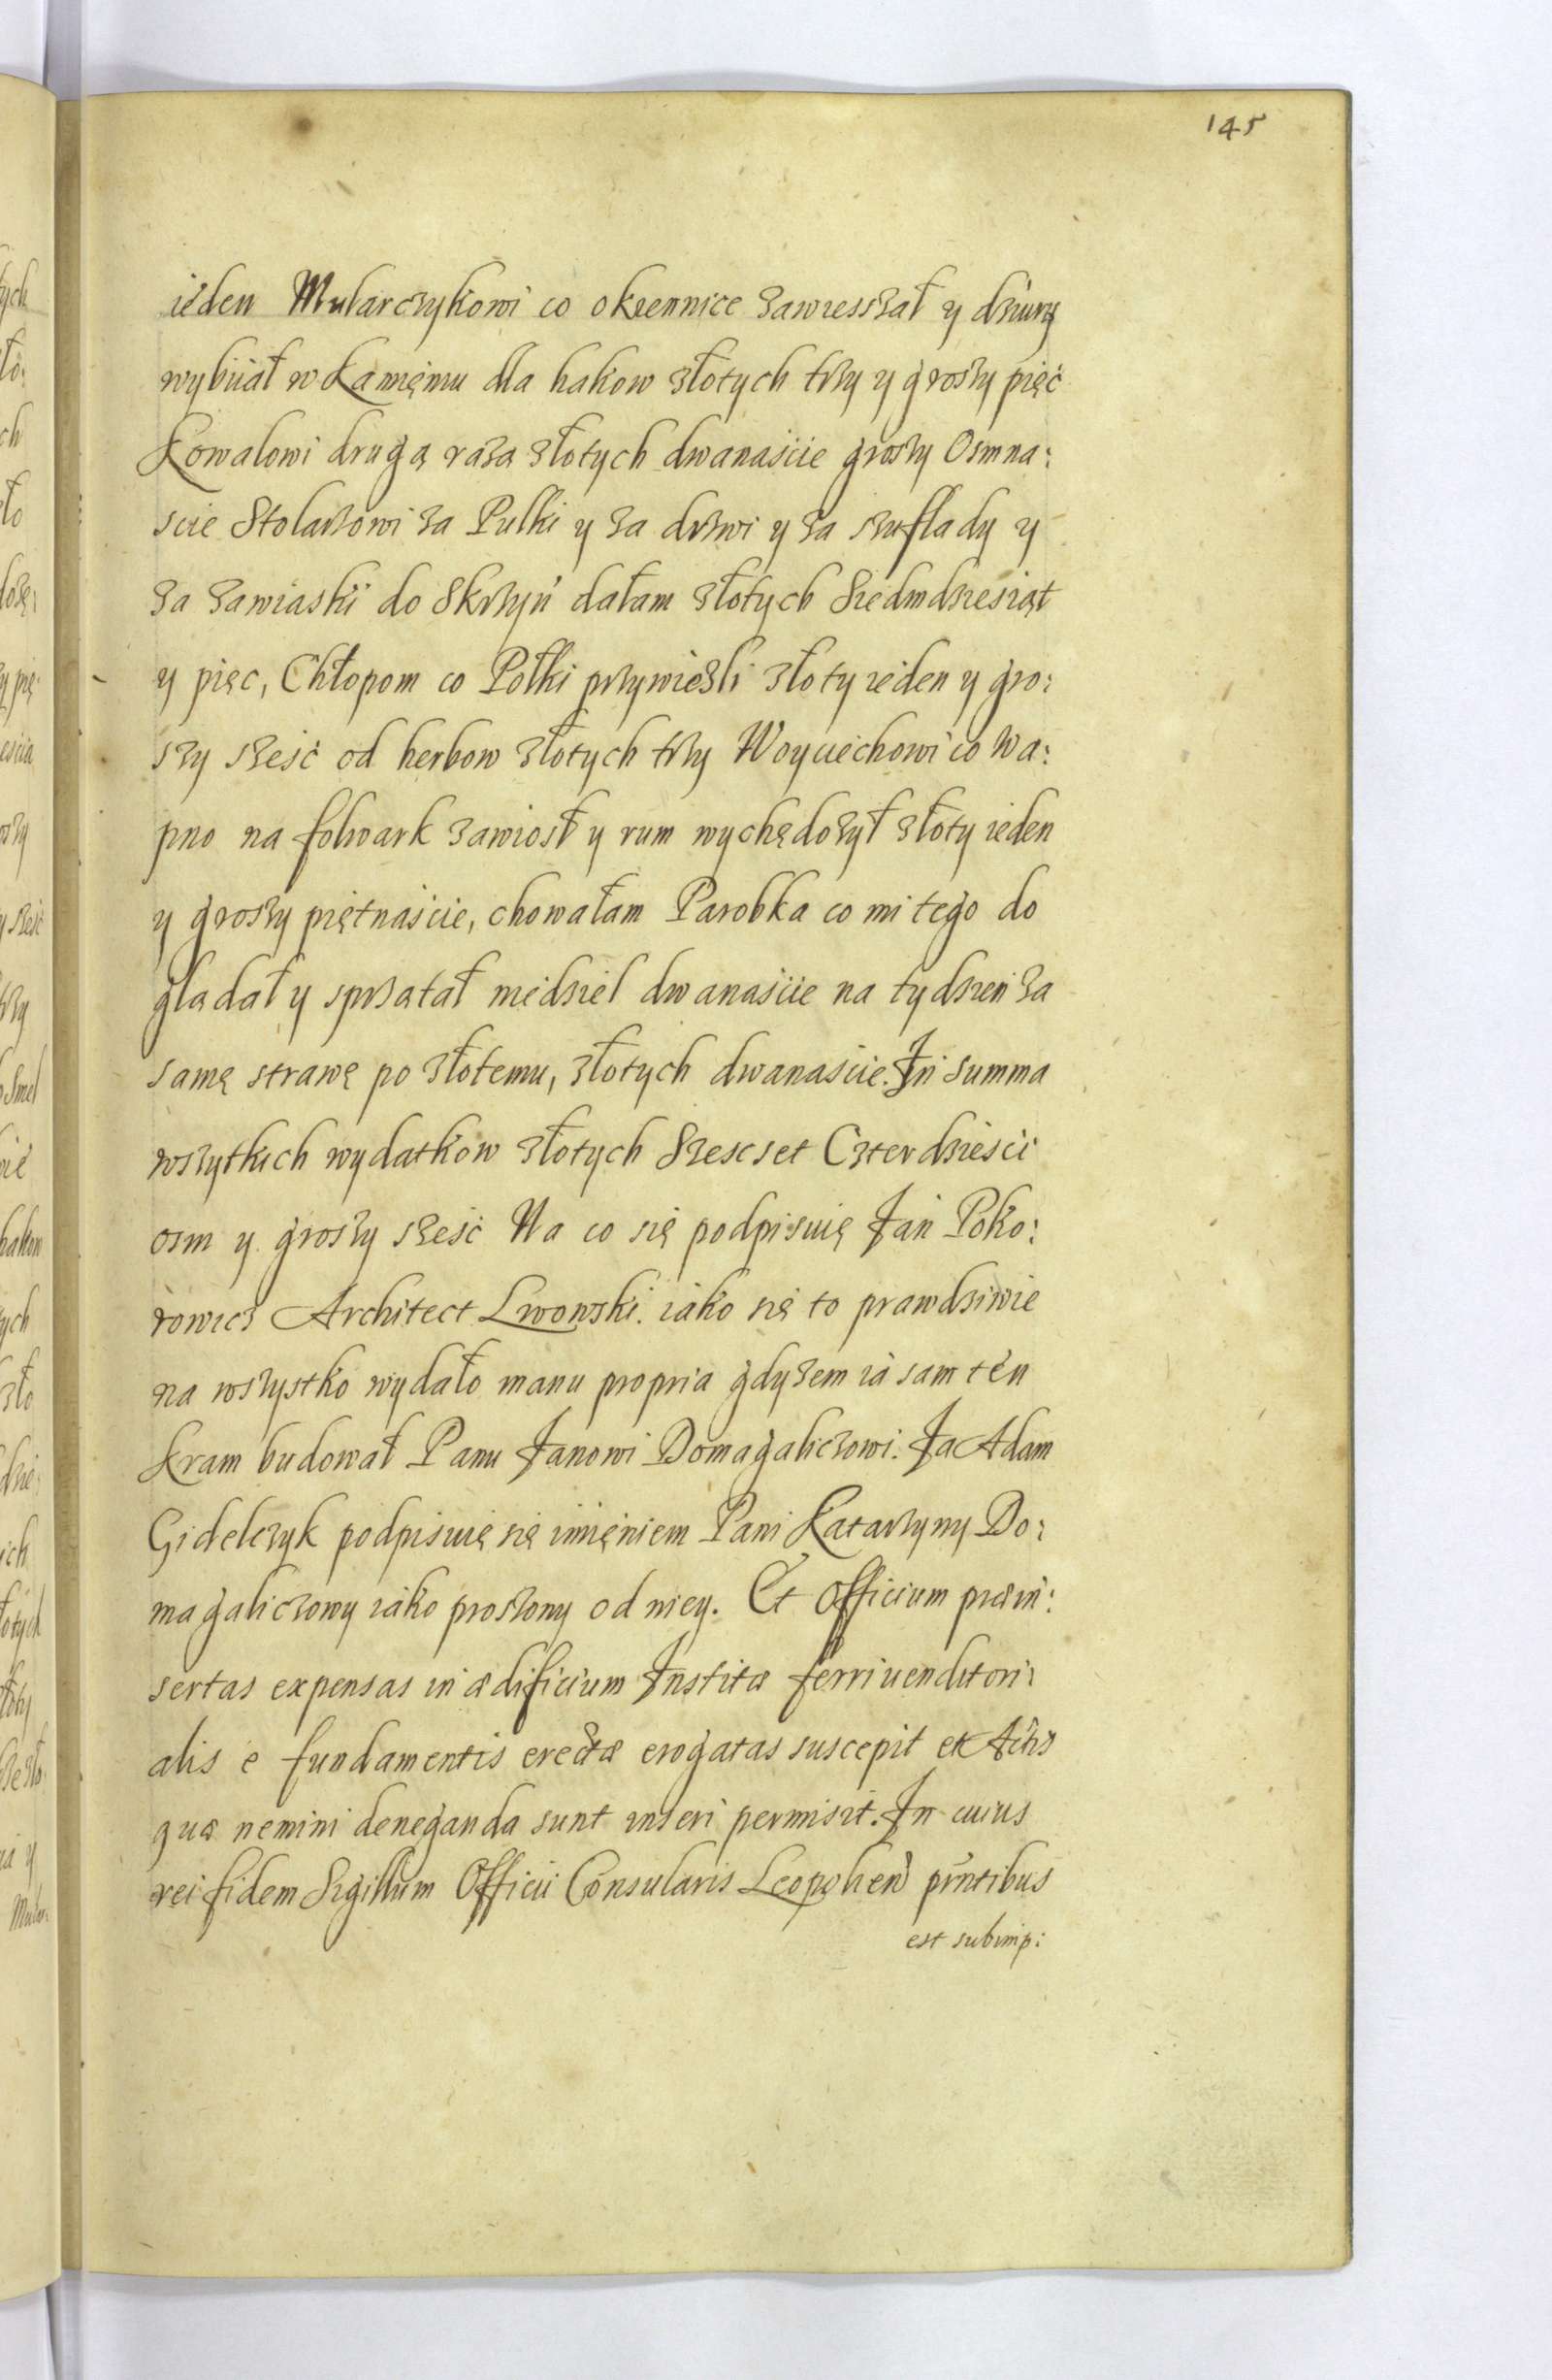 145
ieden Mularczykowi co okiennice zawieszał y dziury
wybiiał w Kamięniu dla hakow złotych trzy y groszy pięć
Kowalowi drugą razą złotych dwanaście groszy Osmna:
scie Stolarzowi za Pulki y za drzwi y za szuflady y
za zawiaski do Skrzyń dałam złotych Siedmdziesiąt
y pięc, Chłopom co Połki przywieźli złoty ieden y gro:
szy sześć od herbow złotych trzy Woyciechowi co Wa:
pno na folwark zawiosł y rum wychędożył złoty ieden
y groszy piętnaście, chowałam Parobka co mi tego do
glądał y sprzątał niedziel dwanaście na tydzień za
samę strawę po złotemu, złotych dwanaście. In summa
wszytkich wydatkow złotych Szescset Czterdzieści
osm y groszy sześć Na co się podpisuię Jan Poko:
rowicz Architect Lwowski. iako się to prawdziwie
na wszystko wydało manu propria gdyżem ia sam ten
Kram budował Panu Janowi Domagaliczowi. Ja Adam
Gidelczyk podpisuię się imięniem Pani Katarzyny Do:
magaliczowy iako proszony od niey. Et Officium præin:
sertas expensas in ædificium Institæ ferri venditori:
alis e fundamentis erectæ erogatas suscepit et Actis
quæ nemini deneganda sunt inseri permisit. In cuius
rei fidem Sigillum Officii Consularis Leopolien pñtibus
est subimp: